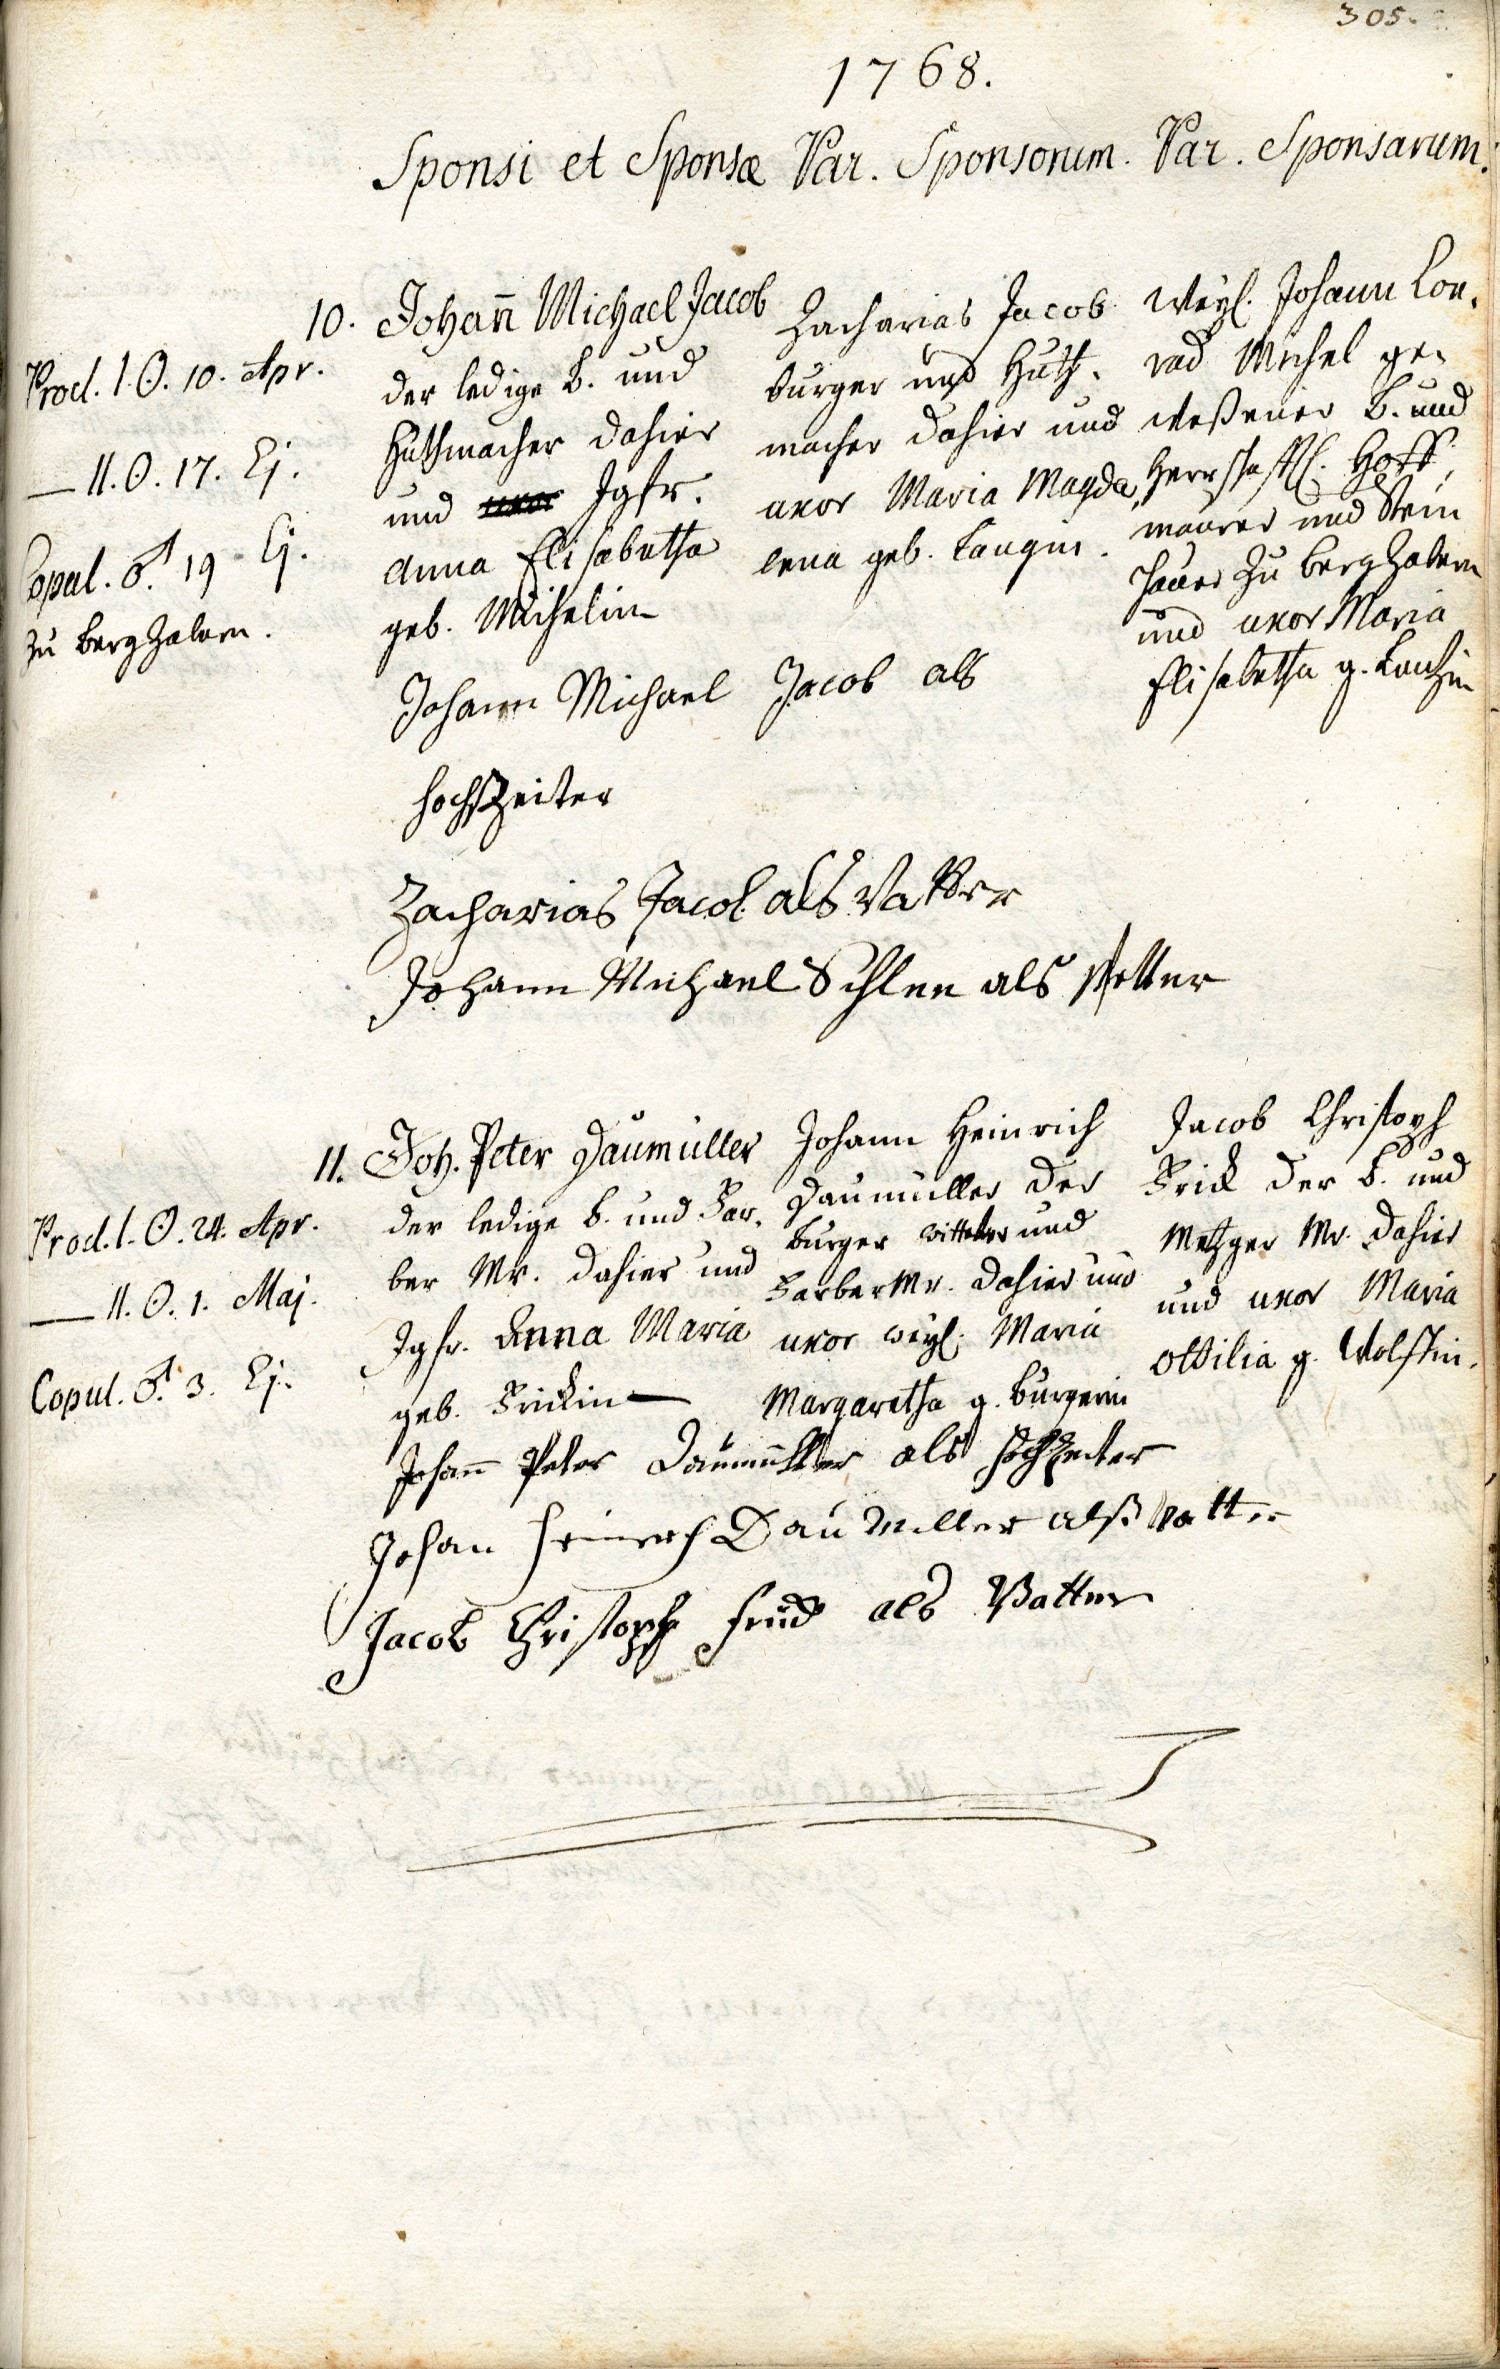 305.
1768.
Sponsi et Sponsæ Par. Sponsorum. Par. Sponsarum.
10.
Proc. 1. ☉. 10. Apr.
— II. ☉. 17. Ej.
Copul. ♂. 19 Ej.
zu Bergzabern.
Johan̄ Michael Jacob
der ledige B. und
Huthmacher dahier
und Jgfr.
Anna Elisabetha
geb. Michelin
Zacharias Jacob
burger und Huth-
macher dahier und
uxor Maria Magda,
lena geb. Langin.
Weyl. Johann Con,
rad Michel ge,
weßener B. und
Herrschafftl. Hoff,
maurer und Stein
hauer zu Bergzabern
und uxor Maria
Elisabetha g.
Johann Michael Jacob als
hochzeiter
Zacharias Jacob als Vatter
Johann Michael als Vetter
11.
Proc. 1. ☉. 24. Apr.
— II. ☉. 1. Maj.
Copul. ♂. 3. Ej.
Joh. Peter Daumüller
der ledige B. und Far,
ber Mr. dahier und
Jgfr. Anna Maria
geb. Frickin —
Johann Heinrich
Daumüller der
burger wittber und
Farber Mr. dahier und
uxor weyl. Maria
Margaretha g. Burgerin
Jacob Christoph
Frick der B. und
Metzger Mr. dahier
und uxor Maria
Ottilia g. Wolffin.
Johann Peter Daumüller als Hochzeiter
Johan Heinrich Daumüller alß Vatter
Jacob Christoph Frick als Vatter